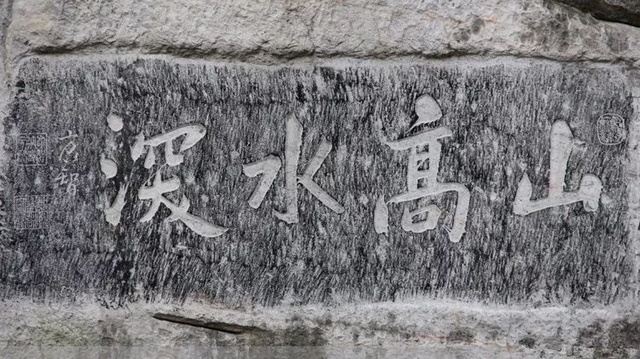 山高水深